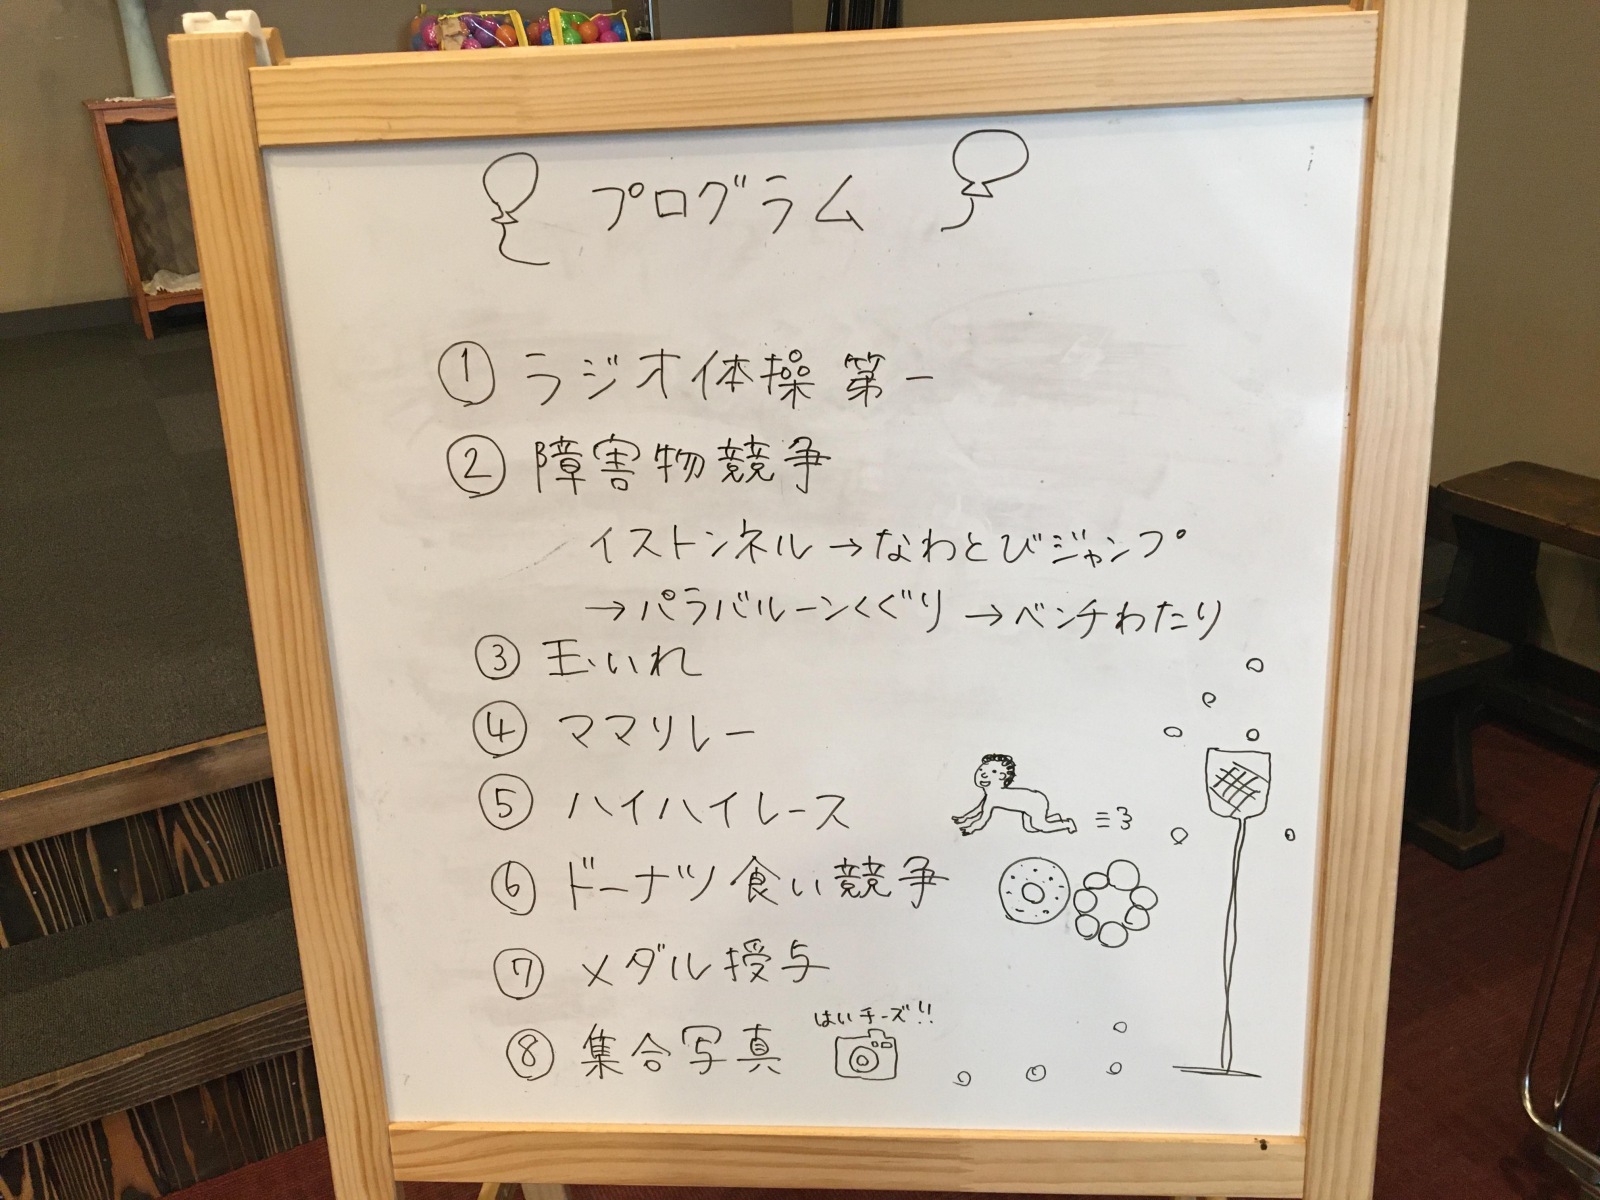 プログラム
① ラジオ体操 第一
② 障害物競争
イストンネル→なわとびジャンプ
→パラバルーンくぐり→ベンチわたり
③ 玉いれ
④ ママリレー
⑤ ハイハイレース
⑥ ドーナツ食い競争
⑦ メダル授与
はいチーズ!!
⑧ 集合写真